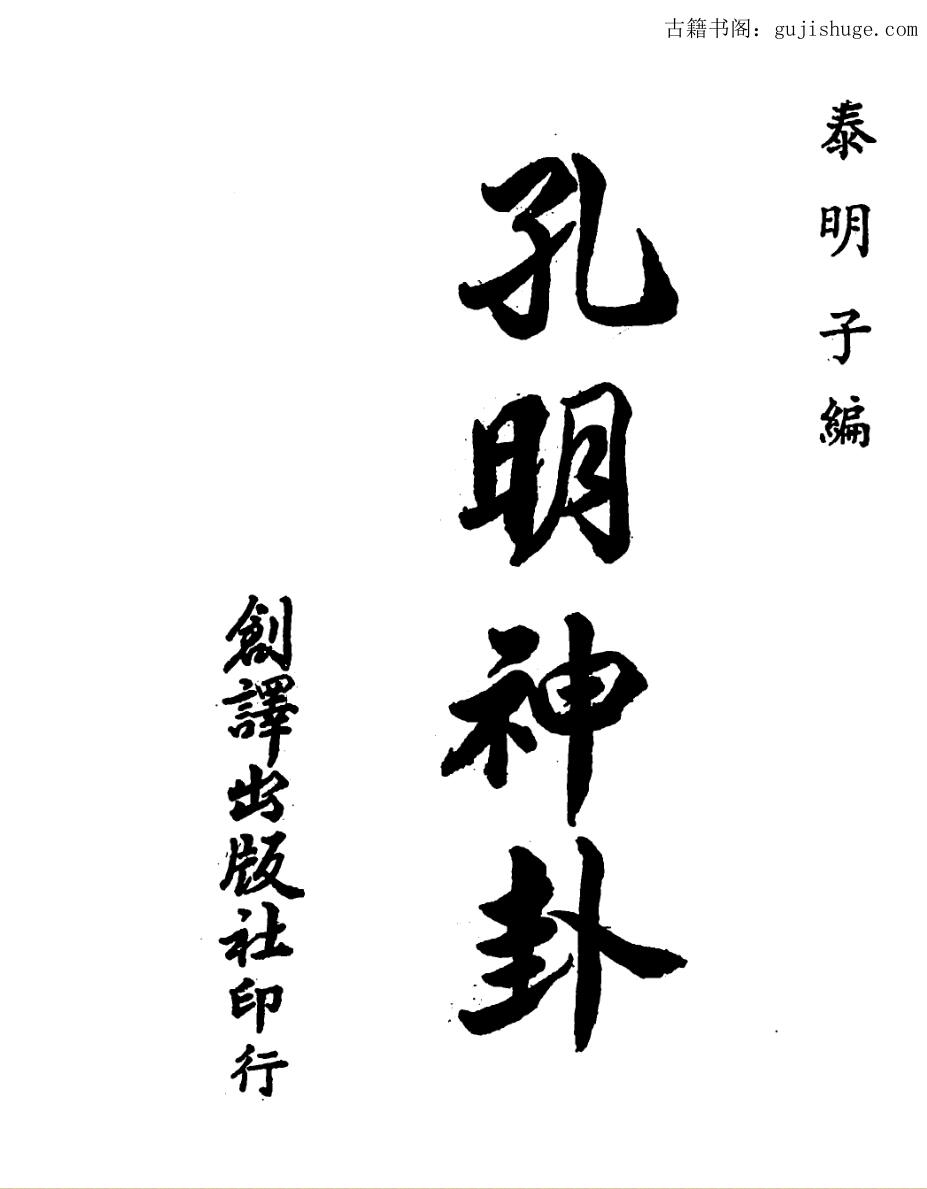 古籍书阁：gujishuge.com
泰明子編
孔明神卦
創譯出版社印行